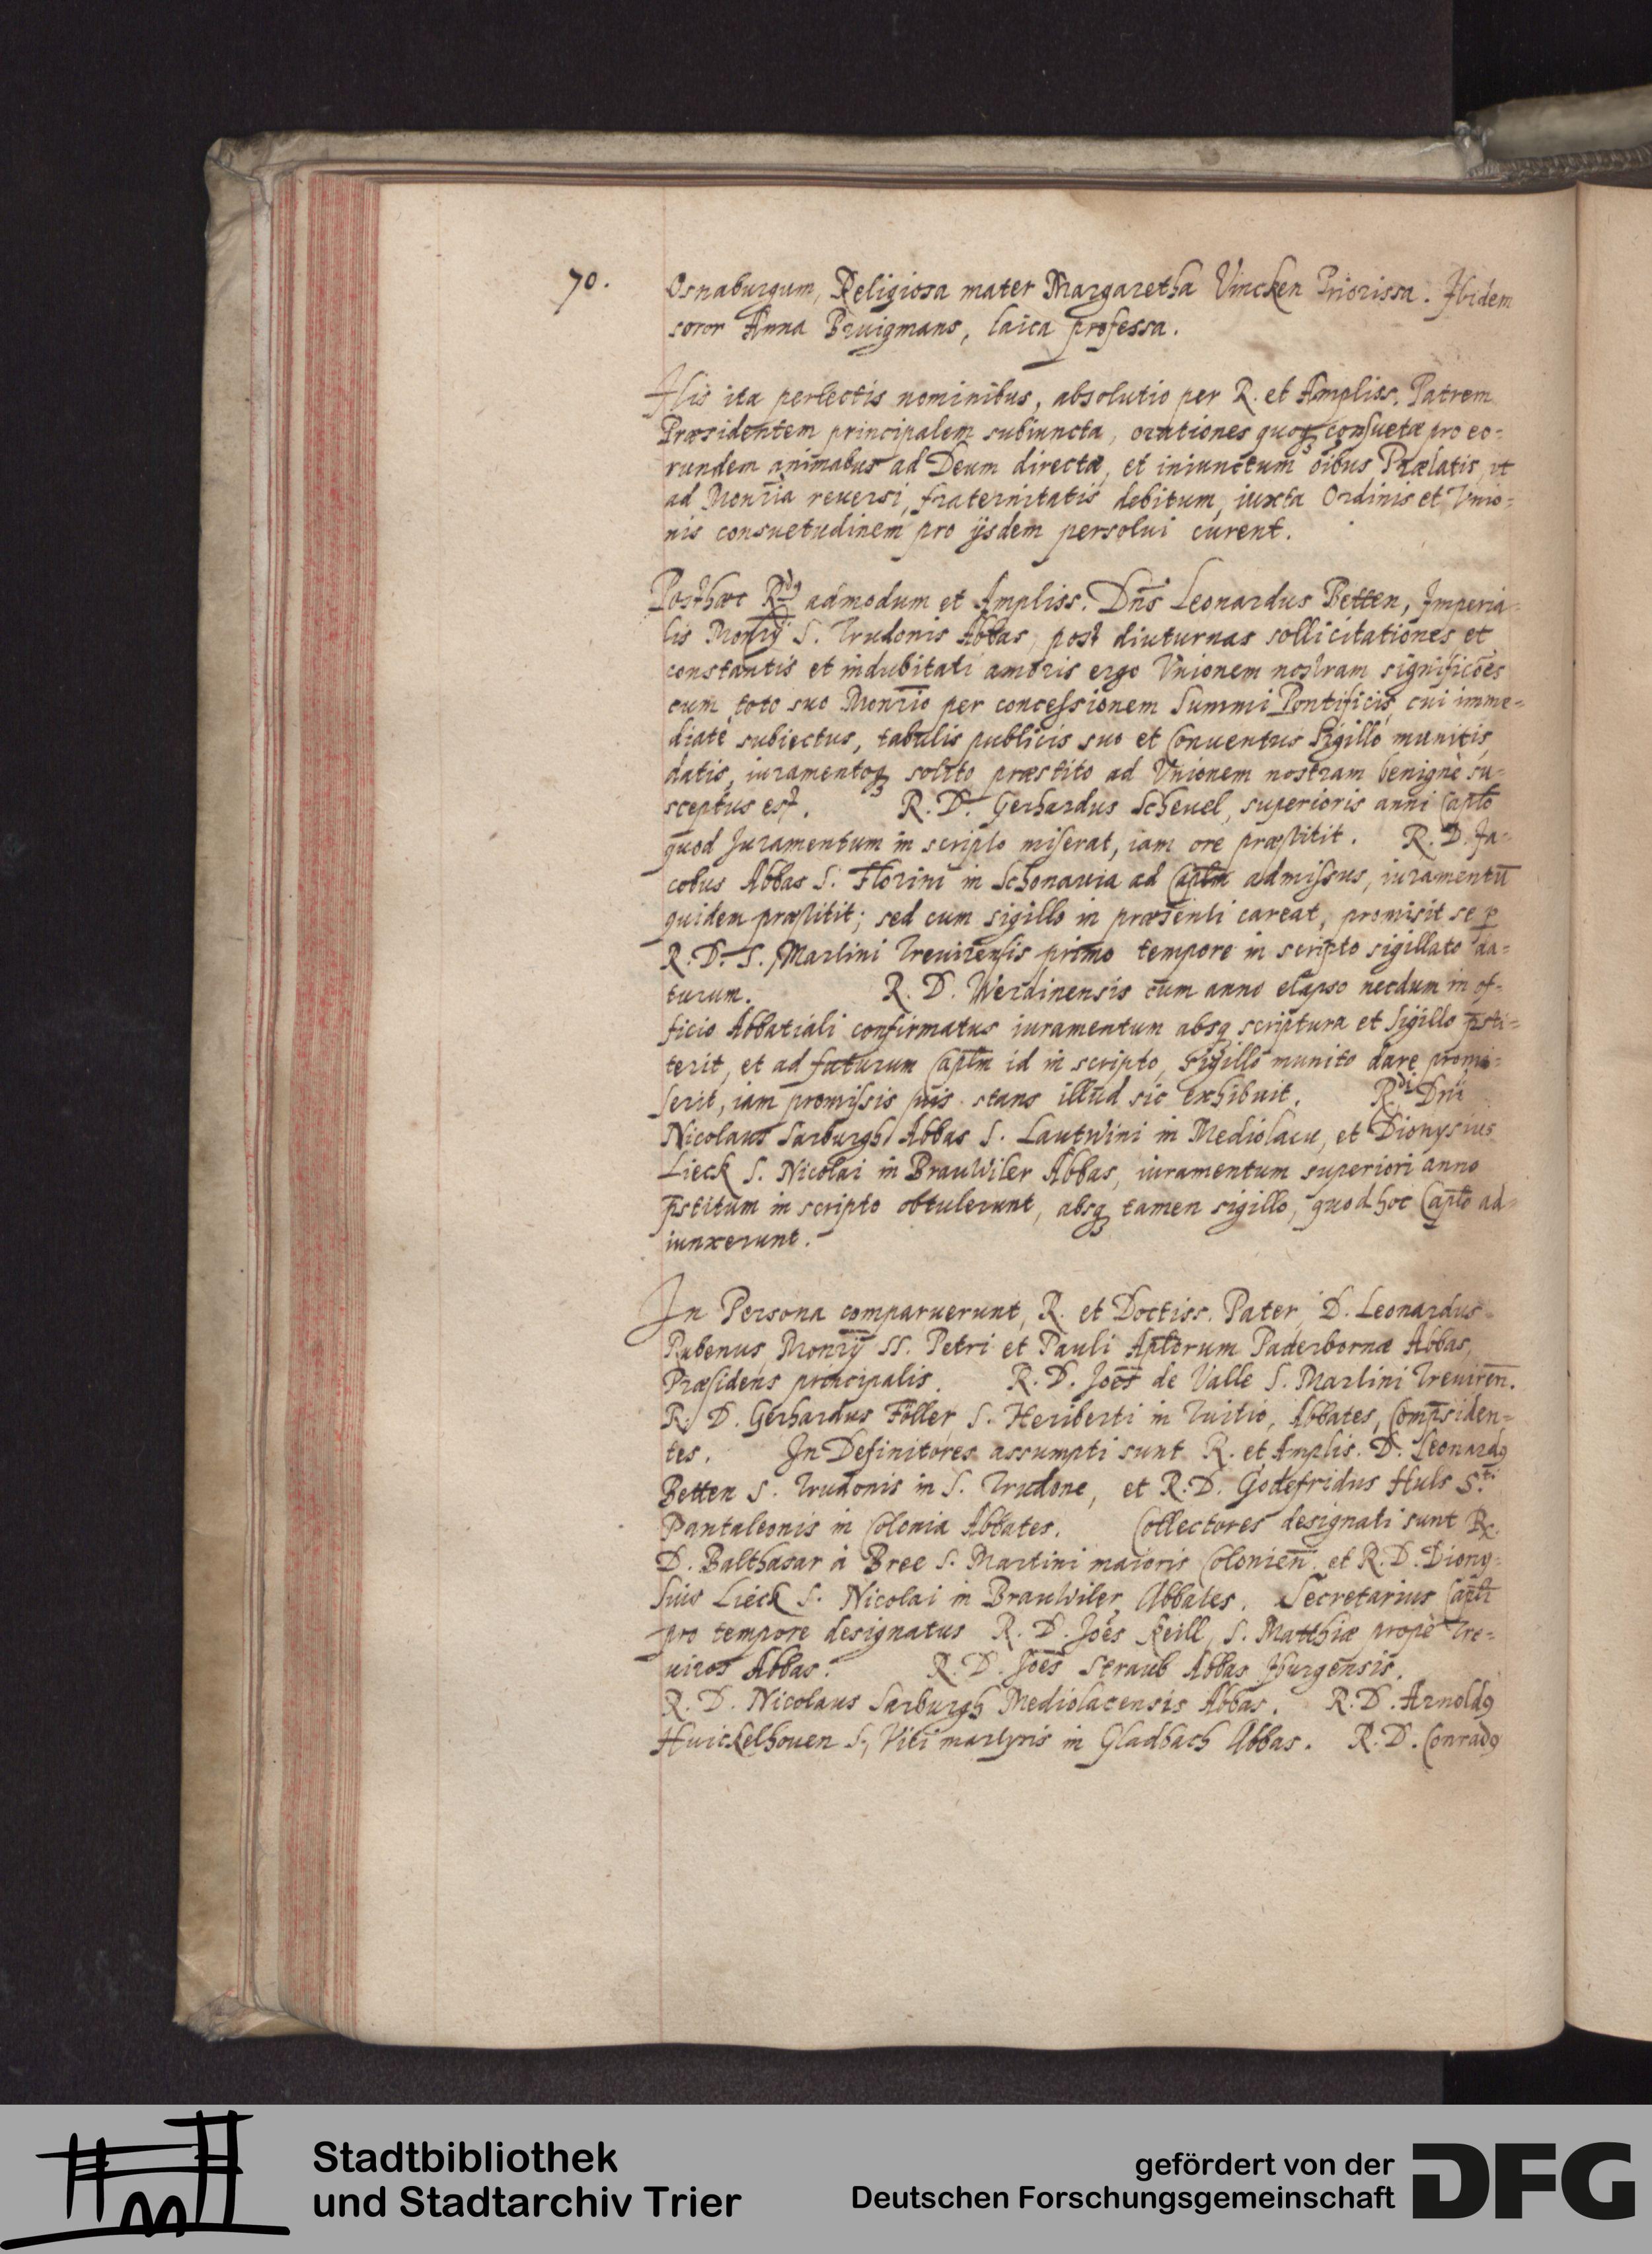 70.
Osnaburgum, Religiosa mater Margaretha Vincken Priorissa. Ibidem
soror Anna Bruigmans, laica professa.
His ita perlectis nominibus, absolutio per R. et Ampliss. Patrem
Præsidentem principalem subiuncta, orationes quoqꝫ consuetæ pro eo=
rundem animabus ad Deum directæ, et iniunctum oībus Prælatis, ut
ad Monr̄ia reuersi, fraternitatis debitum, iuxta Ordinis et Vnio=
nis consuetudinem pro ijsdem persolui curent.
Posthæc Rdꝰ admodum et Ampliss. Dn̄s Leonardus Betten, Imperia=
lis Monr̄ij S. Trudonis Abbas, post diuturnas sollicitationes et
constantis et indubitati amoris ergo Vnionem nostram significōes
cum toto suo Monr̄io per concessionem Summi Pontificis, cui imme=
diatè subiectus, tabulis publicis suo et Conuentus Sigillo munitis,
datis, iuramentoqꝫ solito præstito ad Vnionem nostram benignè su=
sceptus est. R. D. Gerhardus Scheuel, superioris anni Caplō
quod Juramentum in scripto miserat, iam ore præstitit. R. D. Ja=
cobus Abbas S. Florini in Schonauia ad Caplm̄ admissus, iuramentū
quidem præstitit; sed cum sigillo in præsenti careat, promisit se ꝑ
R. D. S. Martini Treuirensis primo tempore in scripto sigillato da=
turum. R. D. Werdinensis cum anno elapso necdum in of=
ficio Abbatiali confirmatus iuramentum absqꝫ scriptura et Sigillo p̄sti=
terit, et ad futurum Caplm̄ id in scripto, Sigillo munito dare promi=
serit, iam promissis suis stans illud sic exhibuit. R.di Dn̄i
Nicolaus Sarburgh Abbas S. Lautwini in Mediolacu, et Dionysius
Lieck S. Nicolai in BrauWiler Abbas, iuramentum superiori anno
p̄stitum in scripto obtulerunt, absqꝫ tamen sigillo, quod hoc Caplō ad=
iunxerunt.
In Persona comparuerunt, R. et Doctiss. Pater, D. Leonardus
Rubenus, Monr̄ij SS. Petri et Pauli Aplōrum Paderbornæ Abbas,
Præsidens principalis. R. D. Joēs de Valle S. Martini Treuiren̄.
R. D. Gerhardus Föller, S. Heriberti in Tuitio, Abbates, Comp̄siden=
tes. In Definitores assumpti sunt R. et Amplis. D. Leonardꝰ
Betten S. Trudonis in S. Trudone, et R. D. Godefridus Huls S.ti
Pantaleonis in Colonia Abbates. Collectores designati sunt R.
D. Balthasar à Bree S. Martini maioris Colonien̄. et R. D. Diony=
sius Lieck S. Nicolai in BrauWiler Abbates. Secretarius Caplī
pro tempore designatus R. D. Joēs Keill, S. Matthiæ propè Tre=
uiros Abbas. R. D. Joēs Straub Abbas Jburgensis.
R. D. Nicolaus Sarburgh Mediolacensis Abbas. R. D. Arnoldꝰ
Huickelhouen S. Viti martyris in Gladbach Abbas. R. D. Conradꝰ
Stadtbibliothek
und Stadtarchiv Trier
gefördert von der
Deutschen Forschungsgemeinschaft
DFG